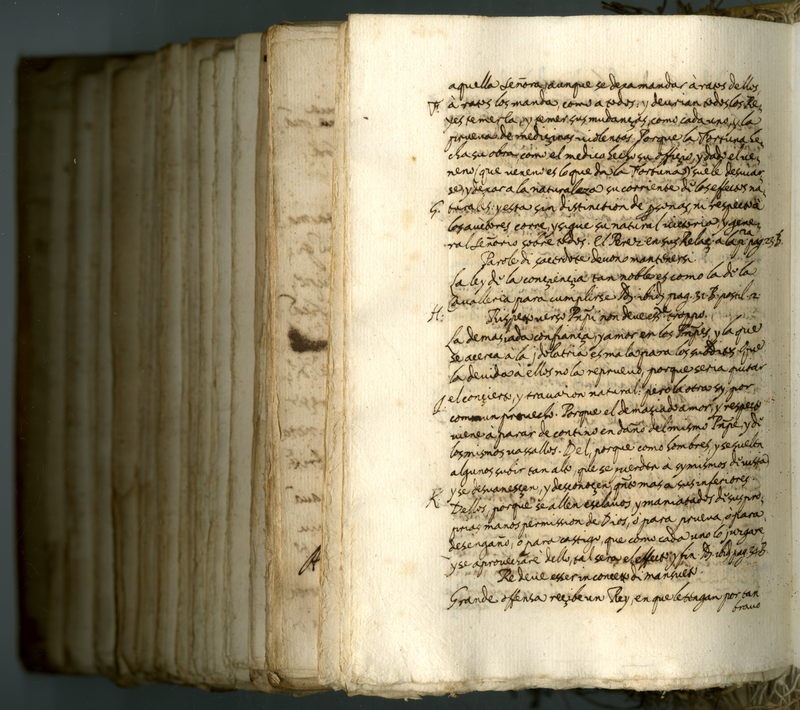 aquella Señora, aunque se dexa mandar à ratos dellos,
à ratos los manda como a todos: y deurian todos los Re-
yes temerla, y temer sus mudanças, como cada uno, y la
prueua de medicinas uiolentas. Porque la Fortuna he-
cha su obra, como el medico hecho su officio, y dado el ue-
neno (que ueneno es lo que da la Fortuna) suele desuiar
se, y dexar a la naturaleza su corriente de los effectos na-
G. turales: y esta sin distinction de psonas ni respecto à
los auctores corre, y sigue su natural uictoria, y gene-
ral Señorio sobre todos. El Perez en sus Relaç. a la pag. 23 B.
Parole di sacerdote deuono mantenersi.
La ley de la conciencia tan noble es como la de la
Caualleria para cumplirse. ibid. pag. 31. B. postil. 2.
H. Rispetto uerso Prñpi non deue esser troppo.
La demasiada confiança, y amor en los Prñpes, y la que
se acerca a la jdolatria es mala para los subditos (que
la deuida à ellos no la reprueuo, porque seria quitar
J. el concierto, y trauaçon natural: pero la otra sy, por
commun prouecho. Porque el demasiado amor, y respecto
uiene à parar de contino en daño del mismo Prñpe, y de
los mismos uassallos. Del, porque como hombres, y se suelen
algunos subir tan alto, que se pierden a sy mismos de uista
y se desuanescen, y desconoçen, quto mas a sus inferiores.
K. Dellos, porque se allen esclauos, y maniatados de sus pro-
prias manos permission de Dios, ò para prueua, ò para
desengaño, ò para castigo, que como cada uno lo juzgare
y se aprouechare dello, tal sera el effecto, y fin. ibid. pag. 35 B.
Re deue esser in concetto di mansueto.
Grande offensa recibe un Rey, en que le tengan por tan
brauo
A